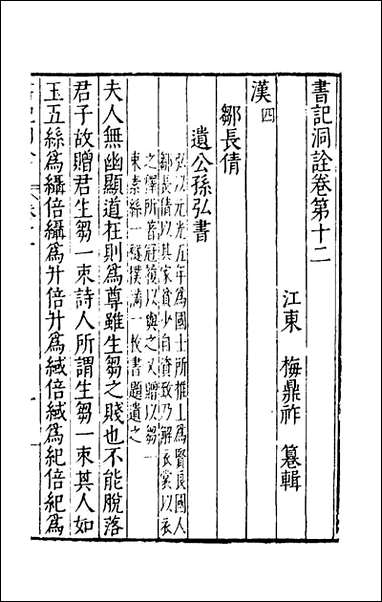 書記洞詮卷第十二
江東 梅鼎祚 纂輯
漢四
鄒長倩
遺公孫弘書
弘以元光五年爲國士所推上爲賢良國人
鄒長倩以其家貧少自資致乃解衣裳以衣
之釋所著冠履以與之又贈以芻一
束素絲一襚撲滿一枚書題遺之
夫人無幽顯道在則爲尊雖生芻之賤也不能脫落
君子故贈君生芻一束詩人所謂生芻一束其人如
玉五絲爲䌰倍䌰爲升倍升爲緎倍緎爲紀倍紀爲